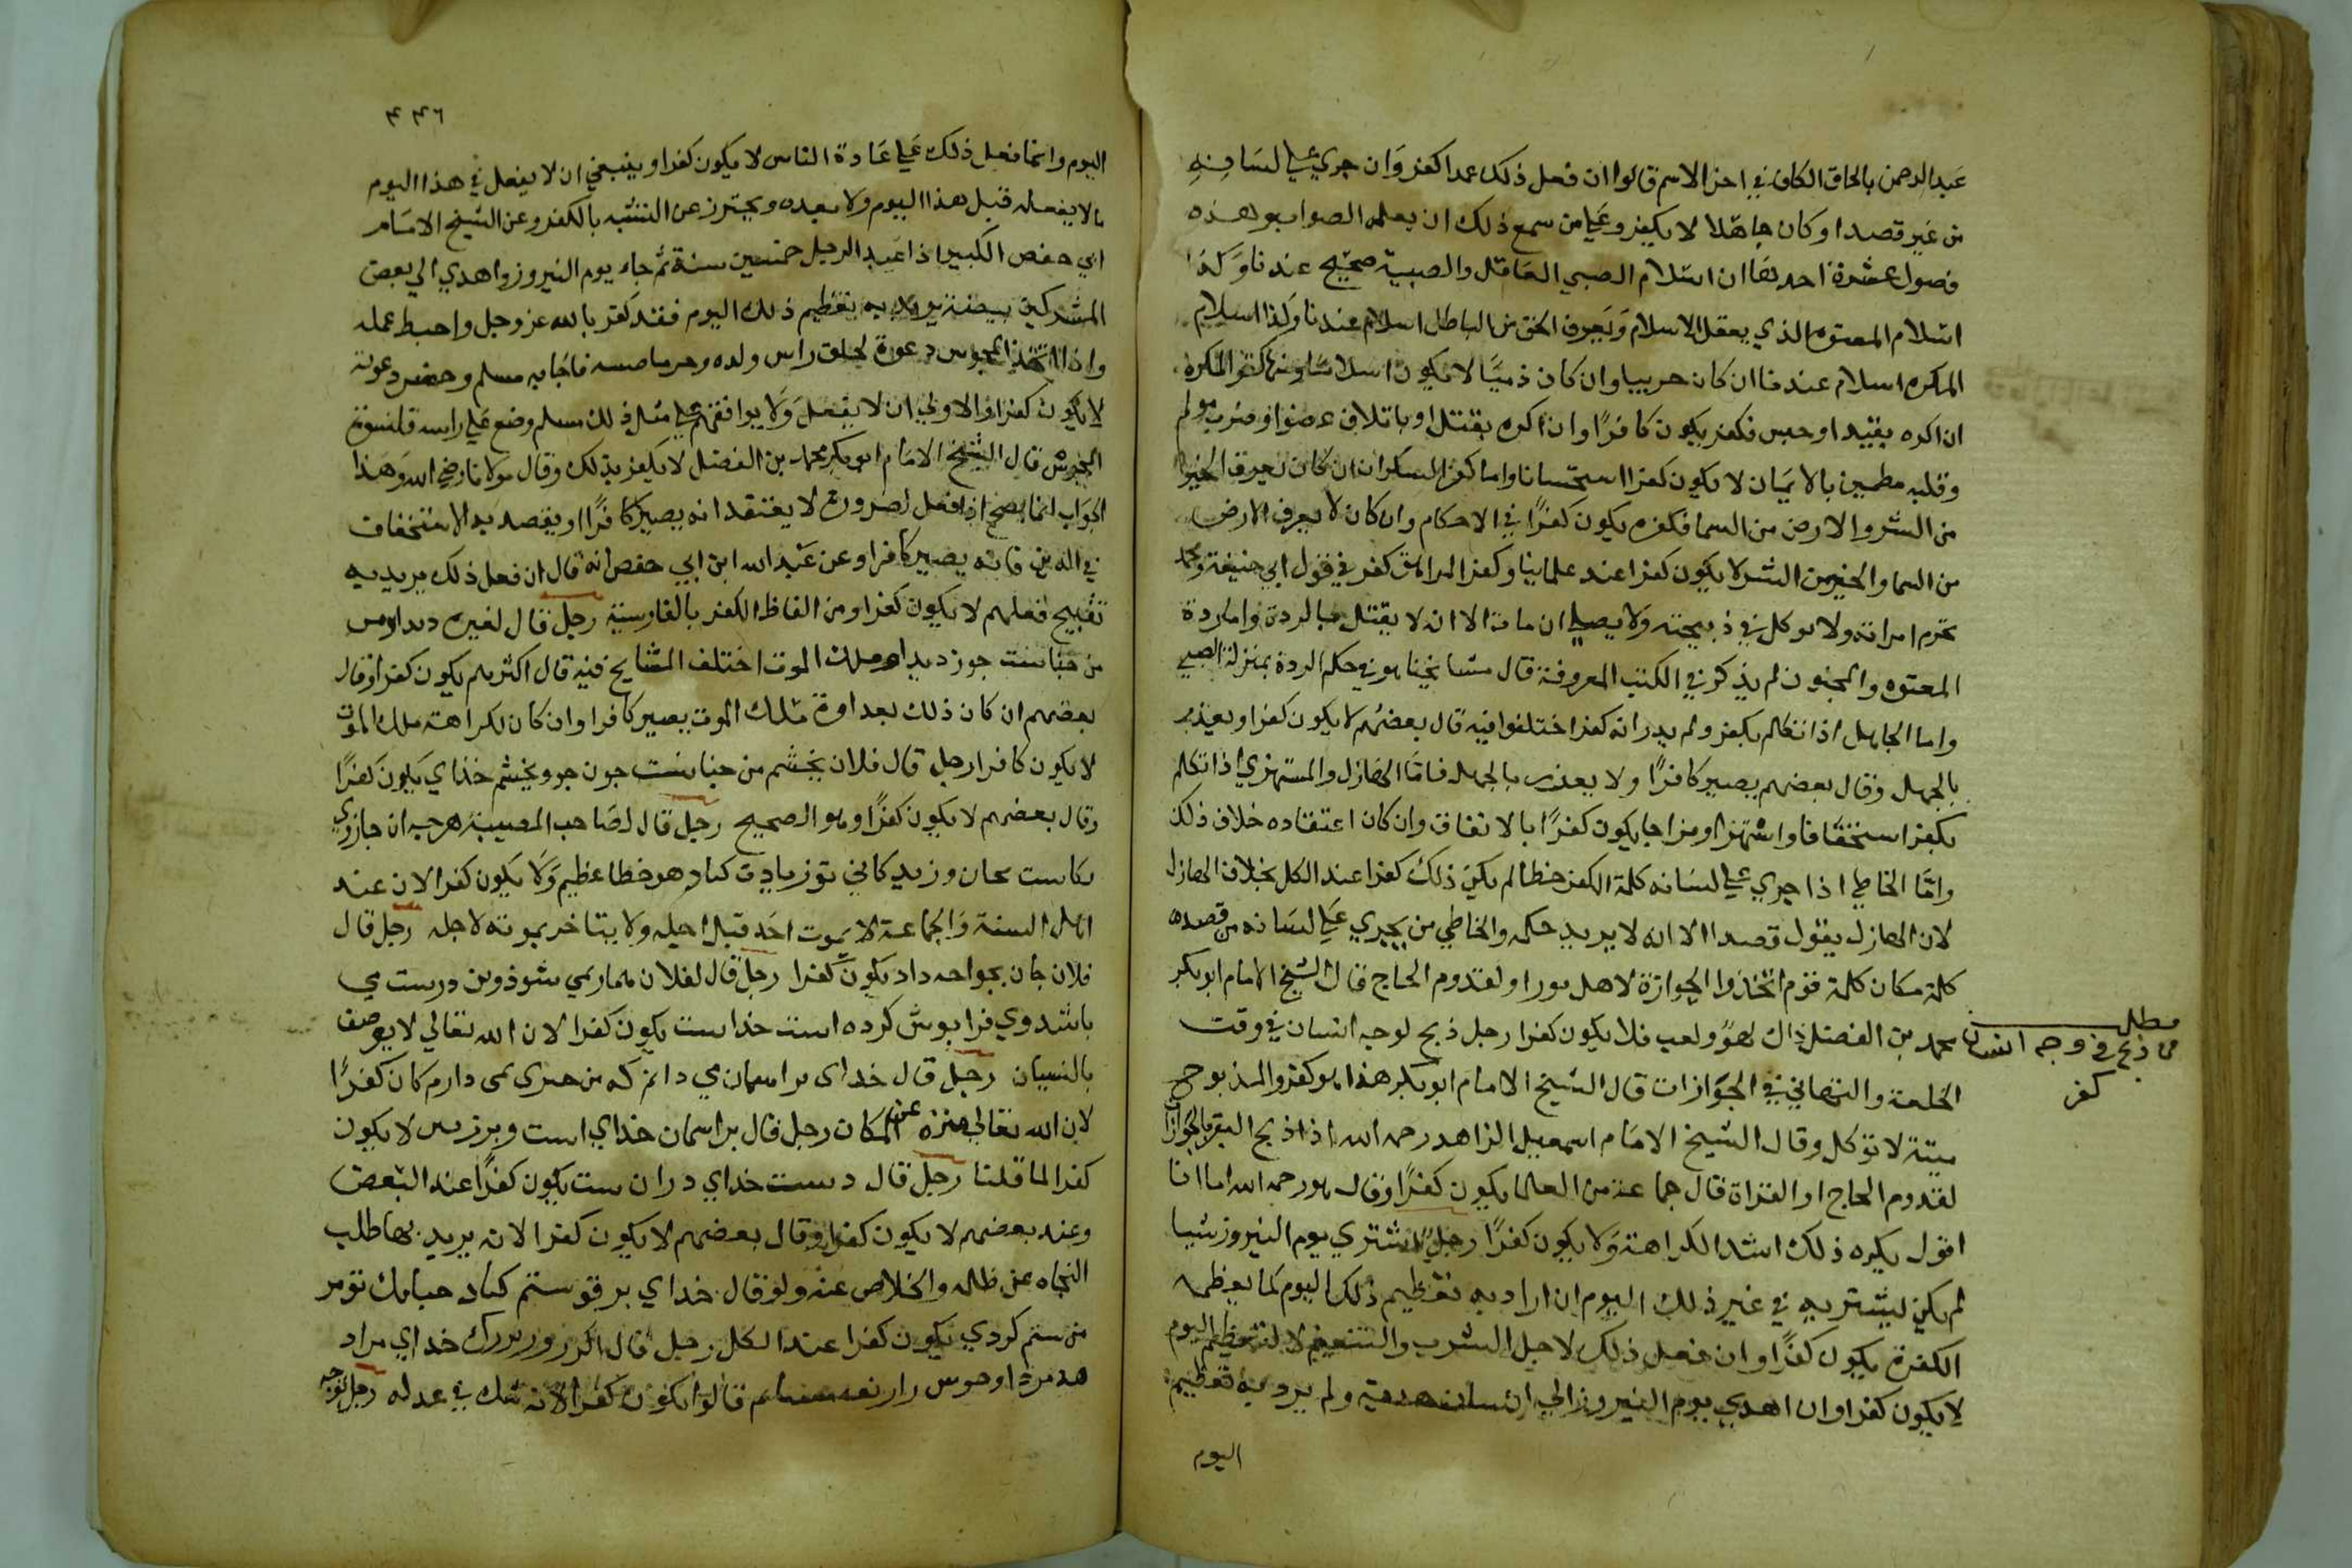 عبد الرحمن بالحاق الكاف في اخر الاسم قالوا ان فعل ذلك عمدا كفر وان جري علي لسانه
من غير قصد او كان جاهلا لا يكفر وعلي من سمع ذلك ان يعلمه الصواب وهذه
فصول عشرة احدها ان اسلام الصبي العاقل والصبية صحيح عندنا وكذا
اسلام المعتوه الذي يعقل الاسلام ويعرف الحق من الباطل اسلام عندنا وكذا اسلام
المكره اسلام عندنا ان كان حربيا وان كان ذميا لا يكون اسلاما ومنها كفر المكره
ان اكره بقيد او حبس فكفر يكون كافرا وان اكره بقتل او باتلاف عضو او ضرب مولم
وقلبه مطمين بالايمان لا يكون كفرا استحسانا واما كفر السكران ان كان يعرف الخير
من الشر والارض من السما فكفره يكون كفرا في الاحكام وان كان لا يعرف الارض
من السما والخير من الشر لا يكون كفرا عند علمائنا وكفر المراهق كفر في قول ابي حنيفة ومحمد
تحرم امراته ولا توكل ذبيحته ولا يصلي ان مات الا انه لا يقتل بالردة واما ردة
المعتوه والمجنون لم يذكر في الكتب المعروفة قال مشايخنا هو في حكم الردة بمنزلة الصبي
واما الجاهل اذا تكلم بكفر ولم يدر انه كفر اختلفوا فيه قال بعضهم لا يكون كفرا ويعذر
بالجهل وقال بعضهم يصير كافرا ولا يعذر بالجهل فاما الهازل والمستهزي اذا تكلم
بكفر استخفافا واستهزا ومزاحا يكون كفرا بالاتفاق وان كان اعتقاده خلاف ذلك
واما الخاطي اذا جري علي لسانه كلمة الكفر خطا لم يكن ذلك كفرا عند الكل بخلاف الهازل
لان الهازل يقول قصدا الا انه لا يريد حكمه والخاطي من يجري علي لسانه من قصده
كلمة مكان كلمة قوم اتخذوا الجوازة لاهل او لقدوم الحاج قال الشيخ الامام ابو بكر
محمد بن الفضل ذاك لهو ولعب فلا يكون كفرا رجل ذبح لوجه انسان في وقت
الخلعة والتهاني في الجوازات قال الشيخ الامام ابو بكر هذا هو كفر والمذبوح
ميتة لا توكل وقال الشيخ الامام اسمعيل الزاهد رحمه الله اذا ذبح البقر بالجوازات
لقدوم الحاج او الغزاة قال جماعة من العلما يكون كفرا وقال هو رحمه الله اما انا
اقول يكره ذلك اشد الكراهة ولا يكون كفرا رجل اشتري يوم النيروز شيا
لم يكن ليشتريه في غير ذلك اليوم ان اراد به تعظيم ذلك اليوم كما يعظمه
الكفرة يكون كفرا وان فعل ذلك لاجل الشرب والتنعم لا لتعظيم اليوم
لا يكون كفرا وان اهدي يوم النيروز الي انسان هدية ولم يرد به تعظيم
اليوم
مطلب
من ذبح في وجه انسان
كفر
٤٤٦
اليوم وانما فعل ذلك علي عادة الناس لا يكون كفرا وينبغي ان لا يفعل في هذا اليوم
ما لا يفعله قبل هذا اليوم ولا بعده ويحترز عن التشبه بالكفر وعن الشيخ الامام
ابي حفص الكبير اذا عبد الرجل خمسين سنة ثم جاء يوم النيروز واهدي الي بعض
المشركين بيضة يريد به تعظيم ذلك اليوم فقد كفر بالله عز وجل واحبط عمله
واذا اتخذ المجوس دعوة لحلق راس ولده فاجابه مسلم وحضر دعوته
لا يكون كفرا والاولي ان لا يفعل ولا يوافقهم علي مثل ذلك مسلم وضع علي راسه قلنسوة
المجوس قال الشيخ الامام ابو بكر محمد بن الفضل لا يكفر بذلك وقال مولانا رضي الله وهذا
الجواب انما يصح اذا فعل لضرورة لا يعتقد انه يصير كافرا او يقصد به الاستخفاف
في الدين فانه يصير كافرا وعن عبد الله ابن ابي حفص انه قال ان فعل ذلك يريد به
تقبيح فعلهم لا يكون كفرا ومن الفاظ الكفر بالفارسية رجل قال لغيره
من چنانست چون ديدار ملك الموت اختلف المشايخ فيه قال اكثرهم يكون كفرا وقال
بعضهم ان كان ذلك بعداوة ملك الموت يصير كافرا وان كان لكراهته ملك الموت
لا يكون كافرا رجل قال فلان بخشم من چنانست جون خذاي يكون كفرا
وقال بعضهم لا يكون كفرا وهو الصحيح رجل قال لصاحب المصيبة هرچه ان جان وي
بكاست بجان وزندكاني تو زيادت كناد هو خطا عظيم ولا يكون كفرا لان عند
اهل السنة والجماعة لا يموت احد قبل اجله ولا يتاخر بموته لاجله رجل قال
فلان جان بخواجه داد يكون كفرا رجل قال لفلان بيمار نمي شوذ وتن درست مي
باشد وي فراموش كرده است خداست يكون كفرا لان الله تعالي لا يوصف
بالنسيان رجل قال خداي بر اسمان مي داند كه من چيزي نمي دارم كان كفرا
لان الله تعالي منزه عن المكان رجل قال بر اسمان خداي است وبر زمين لا يكون
كفرا لما قلنا رجل قال دست خداي دران ست يكون كفرا عند البعض
وعند بعضهم لا يكون كفرا وقال بعضهم لا يكون كفرا لانه يريد بها طلب
النجاه عن ظلمه والخلاص عنه ولو قال خداي بر تو ستم كناد چنانك تو بر
من ستم كردي يكون كفرا عند الكل رجل قال اكر روز بزرك خداي مراد
هد قالوا يكون كفرا لانه شك في عدله رجل توجه